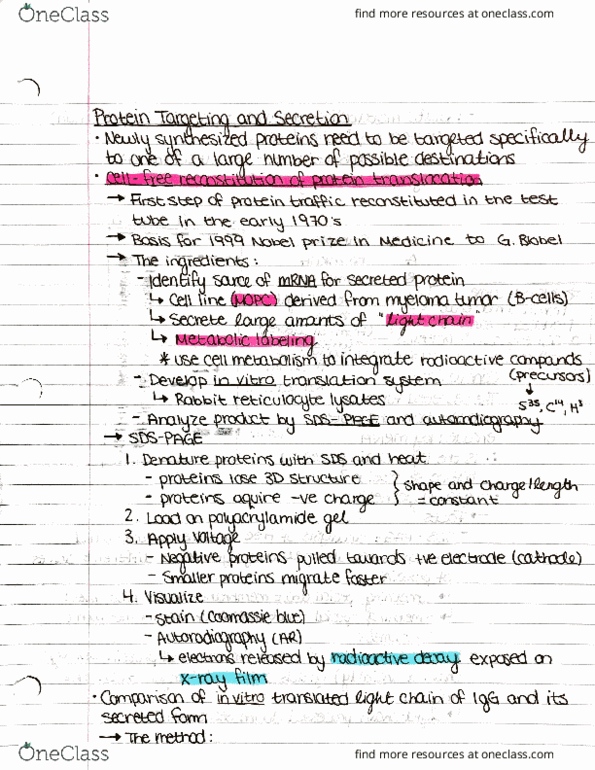 OneClass
find more resources at oneclass.com
Protein Targeting and Secretion
• Newly synthesized proteins need to be targeted specifically
to one of a large number of possible destinations
• Cell-free reconstitution of protein translocation
→ First step of protein traffic reconstituted in the test
tube in the early 1970's
→ Basis for 1999 Nobel prize in Medicine to G. Blobel
→ The ingredients:
- Identify source of mRNA for secreted protein
↳ Cell line (MOPC) derived from myeloma tumor (B-cells)
↳ Secrete large amounts of "light chain"
↳ Metabolic labeling
* use cell metabolism to integrate radioactive compounds
(precursors)
↓
S³⁵, C¹⁴, H³
- Develop in vitro translation system
↳ Rabbit reticulocyte lysates
- Analyze product by SDS-PAGE and autoradiography
→ SDS-PAGE
1. Denature proteins with SDS and heat
- proteins lose 3D structure
- proteins aquire -ve charge
} shape and charge/length
= constant
2. Load on polyacrylamide gel
3. Apply voltage
- Negative proteins pulled towards +ve electrode (cathode)
- Smaller proteins migrate faster
4. Visualize
- stain (coomassie blue)
- Autoradiography (AR)
↳ electrons released by radioactive decay exposed on
x-ray film
• Comparison of in vitro translated light chain of IgG and its
secreted form
→ The method:
OneClass
find more resources at oneclass.com